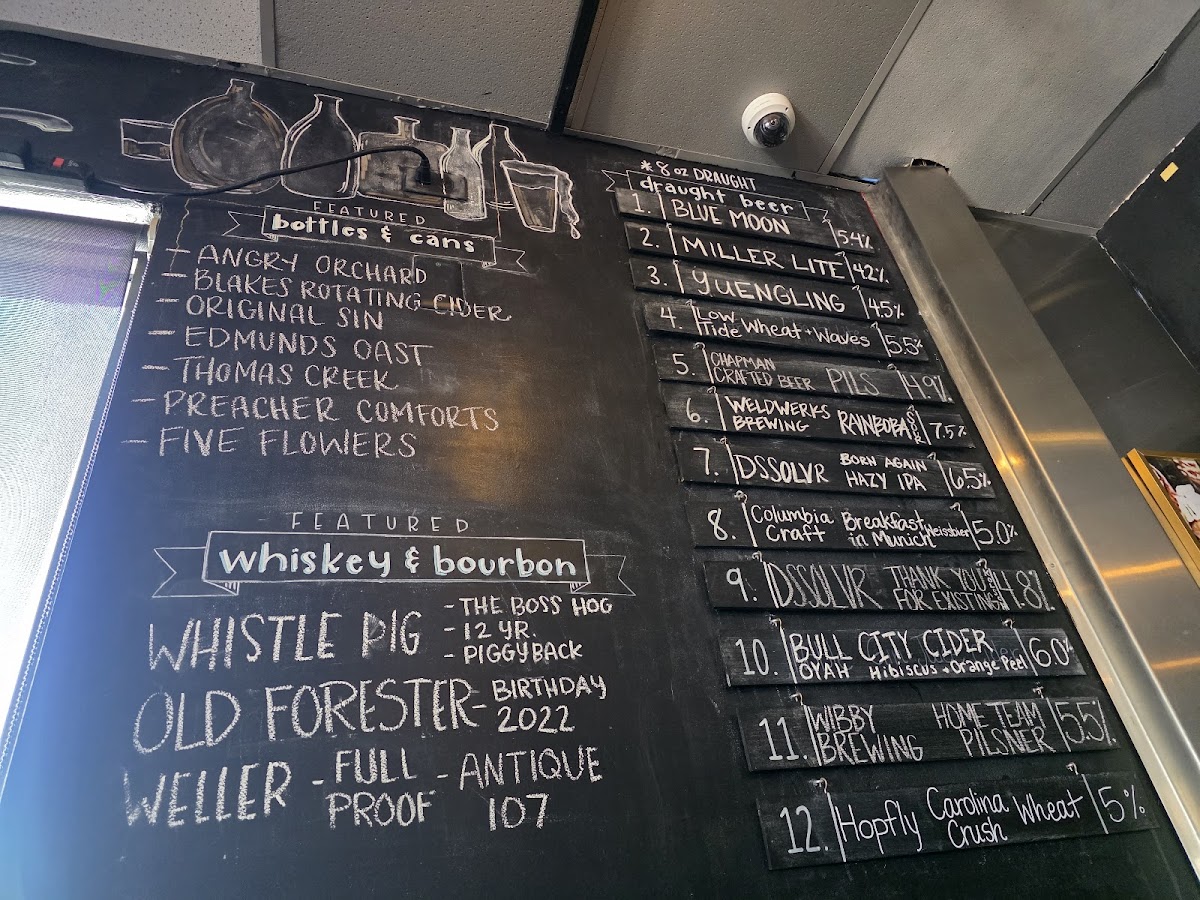 FEATURED
bottles & cans
- ANGRY ORCHARD
- BLAKES ROTATING CIDER
- ORIGINAL SIN
- EDMUNDS OAST
- THOMAS CREEK
- PREACHER COMFORTS
- FIVE FLOWERS
FEATURED
whiskey & bourbon
WHISTLE PIG
- THE BOSS HOG
- 12 YR.
- PIGGYBACK
OLD FORESTER - BIRTHDAY
2022
WELLER - FULL PROOF - ANTIQUE 107
* 8 oz DRAUGHT
draught beer
1. BLUE MOON 5.4%
2. MILLER LITE 4.2%
3. YUENGLING 4.5%
4. LOW Tide Wheat + Waves 5.5%
5. CHAPMAN CRAFTED BEER PILS 4.9%
6. WELDWERKS BREWING 7.5%
7. DSSOLVR BORN AGAIN HAZY IPA 6.5%
8. Columbia Craft Breakfast in Munich Weissbier 5.0%
9. DSSOLVR THANK YOU FOR EXISTING 4.8%
10. BULL CITY CIDER 6.0%
OYAH Hibiscus + Orange Peel
11. WIBBY BREWING HOME TEAM PILSNER 5.5%
12. Hopfly Carolina Crush Wheat 5%